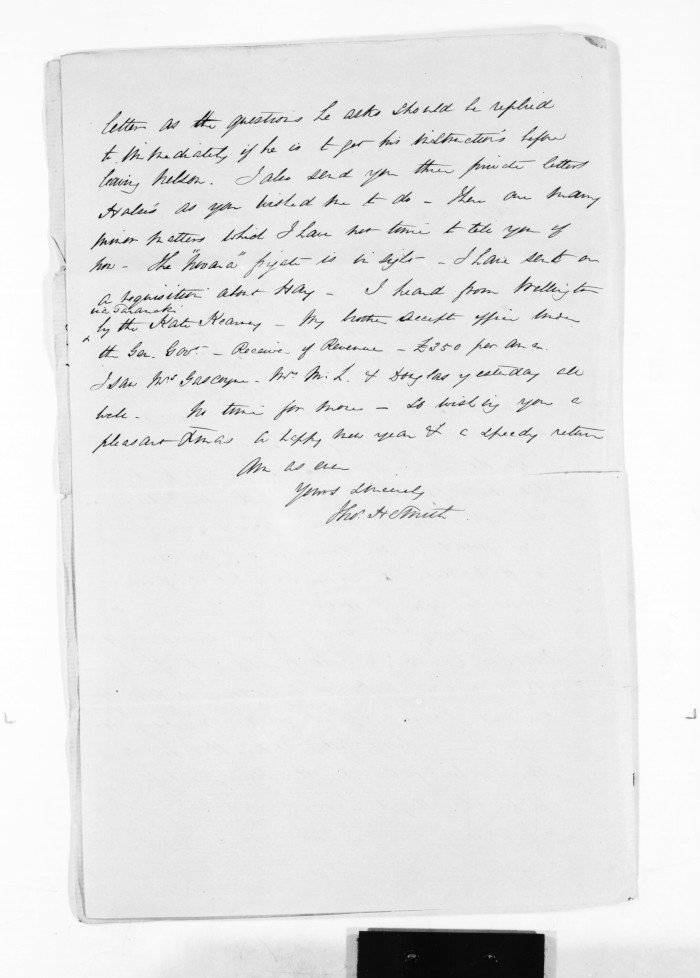 letter as the questions he asks should be replied
to immediately if he is to get his instructions before
leaving Nelson. I also send you three private letters
Halse's as you wished me to do - There are many
minor matters which I have not time to tell you of
now - The "Novara" frigate is in sight - I have sent on
a requisition about Hay - I heard from Wellington
via Taranaki
by the Kate Kearney - My brother accepts office under
the Gen. Govt. - Receiver of Revenue - £350 per ann.
I saw Mrs Gascoyne - Mrs McL. & Douglas yesterday all
well. No time for more - So wishing you a
pleasant Xmas a happy new year & a speedy return
Am as ever
Yours sincerely
Thos. H Smith.